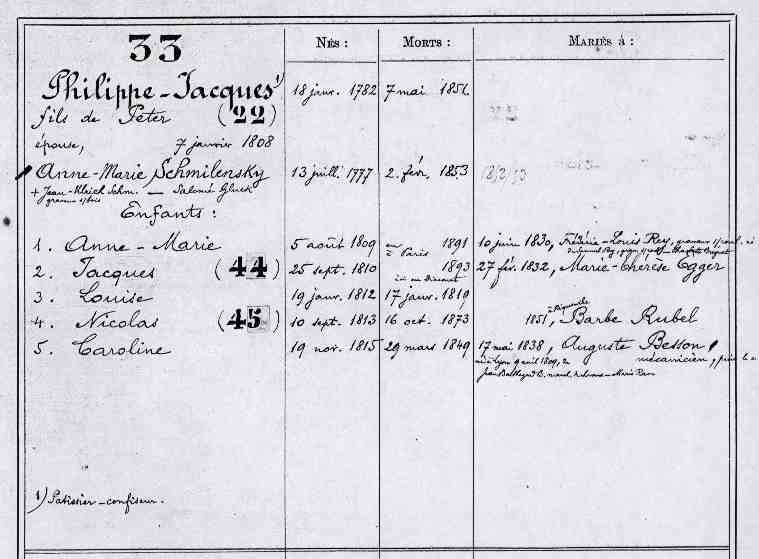 33 Nés : Morts : Mariés à :
Philippe-Jacques 1) 18 janv. 1782 7 mai 1856
fils de Peter (22)
épouse, 7 janvier 1808
Anne-Marie Schmilensky 13 juill. 1777 2. fév. 1853
Salomé Gluck
Enfants :
1. Anne-Marie 5 août 1809 à Paris 1891 10 juin 1830, Frédéric-Louis Rey, graveur
2. Jacques (44) 25 sept. 1810 1893 27 fév. 1832, Marie-Thérèse Egger
3. Louise 19 janv. 1812 17 janv. 1819
4. Nicolas (45) 10 sept. 1813 16 oct. 1873 1851, Barbe Rubel
5. Caroline 19 nov. 1815 29 mars 1849 17 mai 1838, Auguste Besson,
mécanicien,
1) Patissier-confiseur.